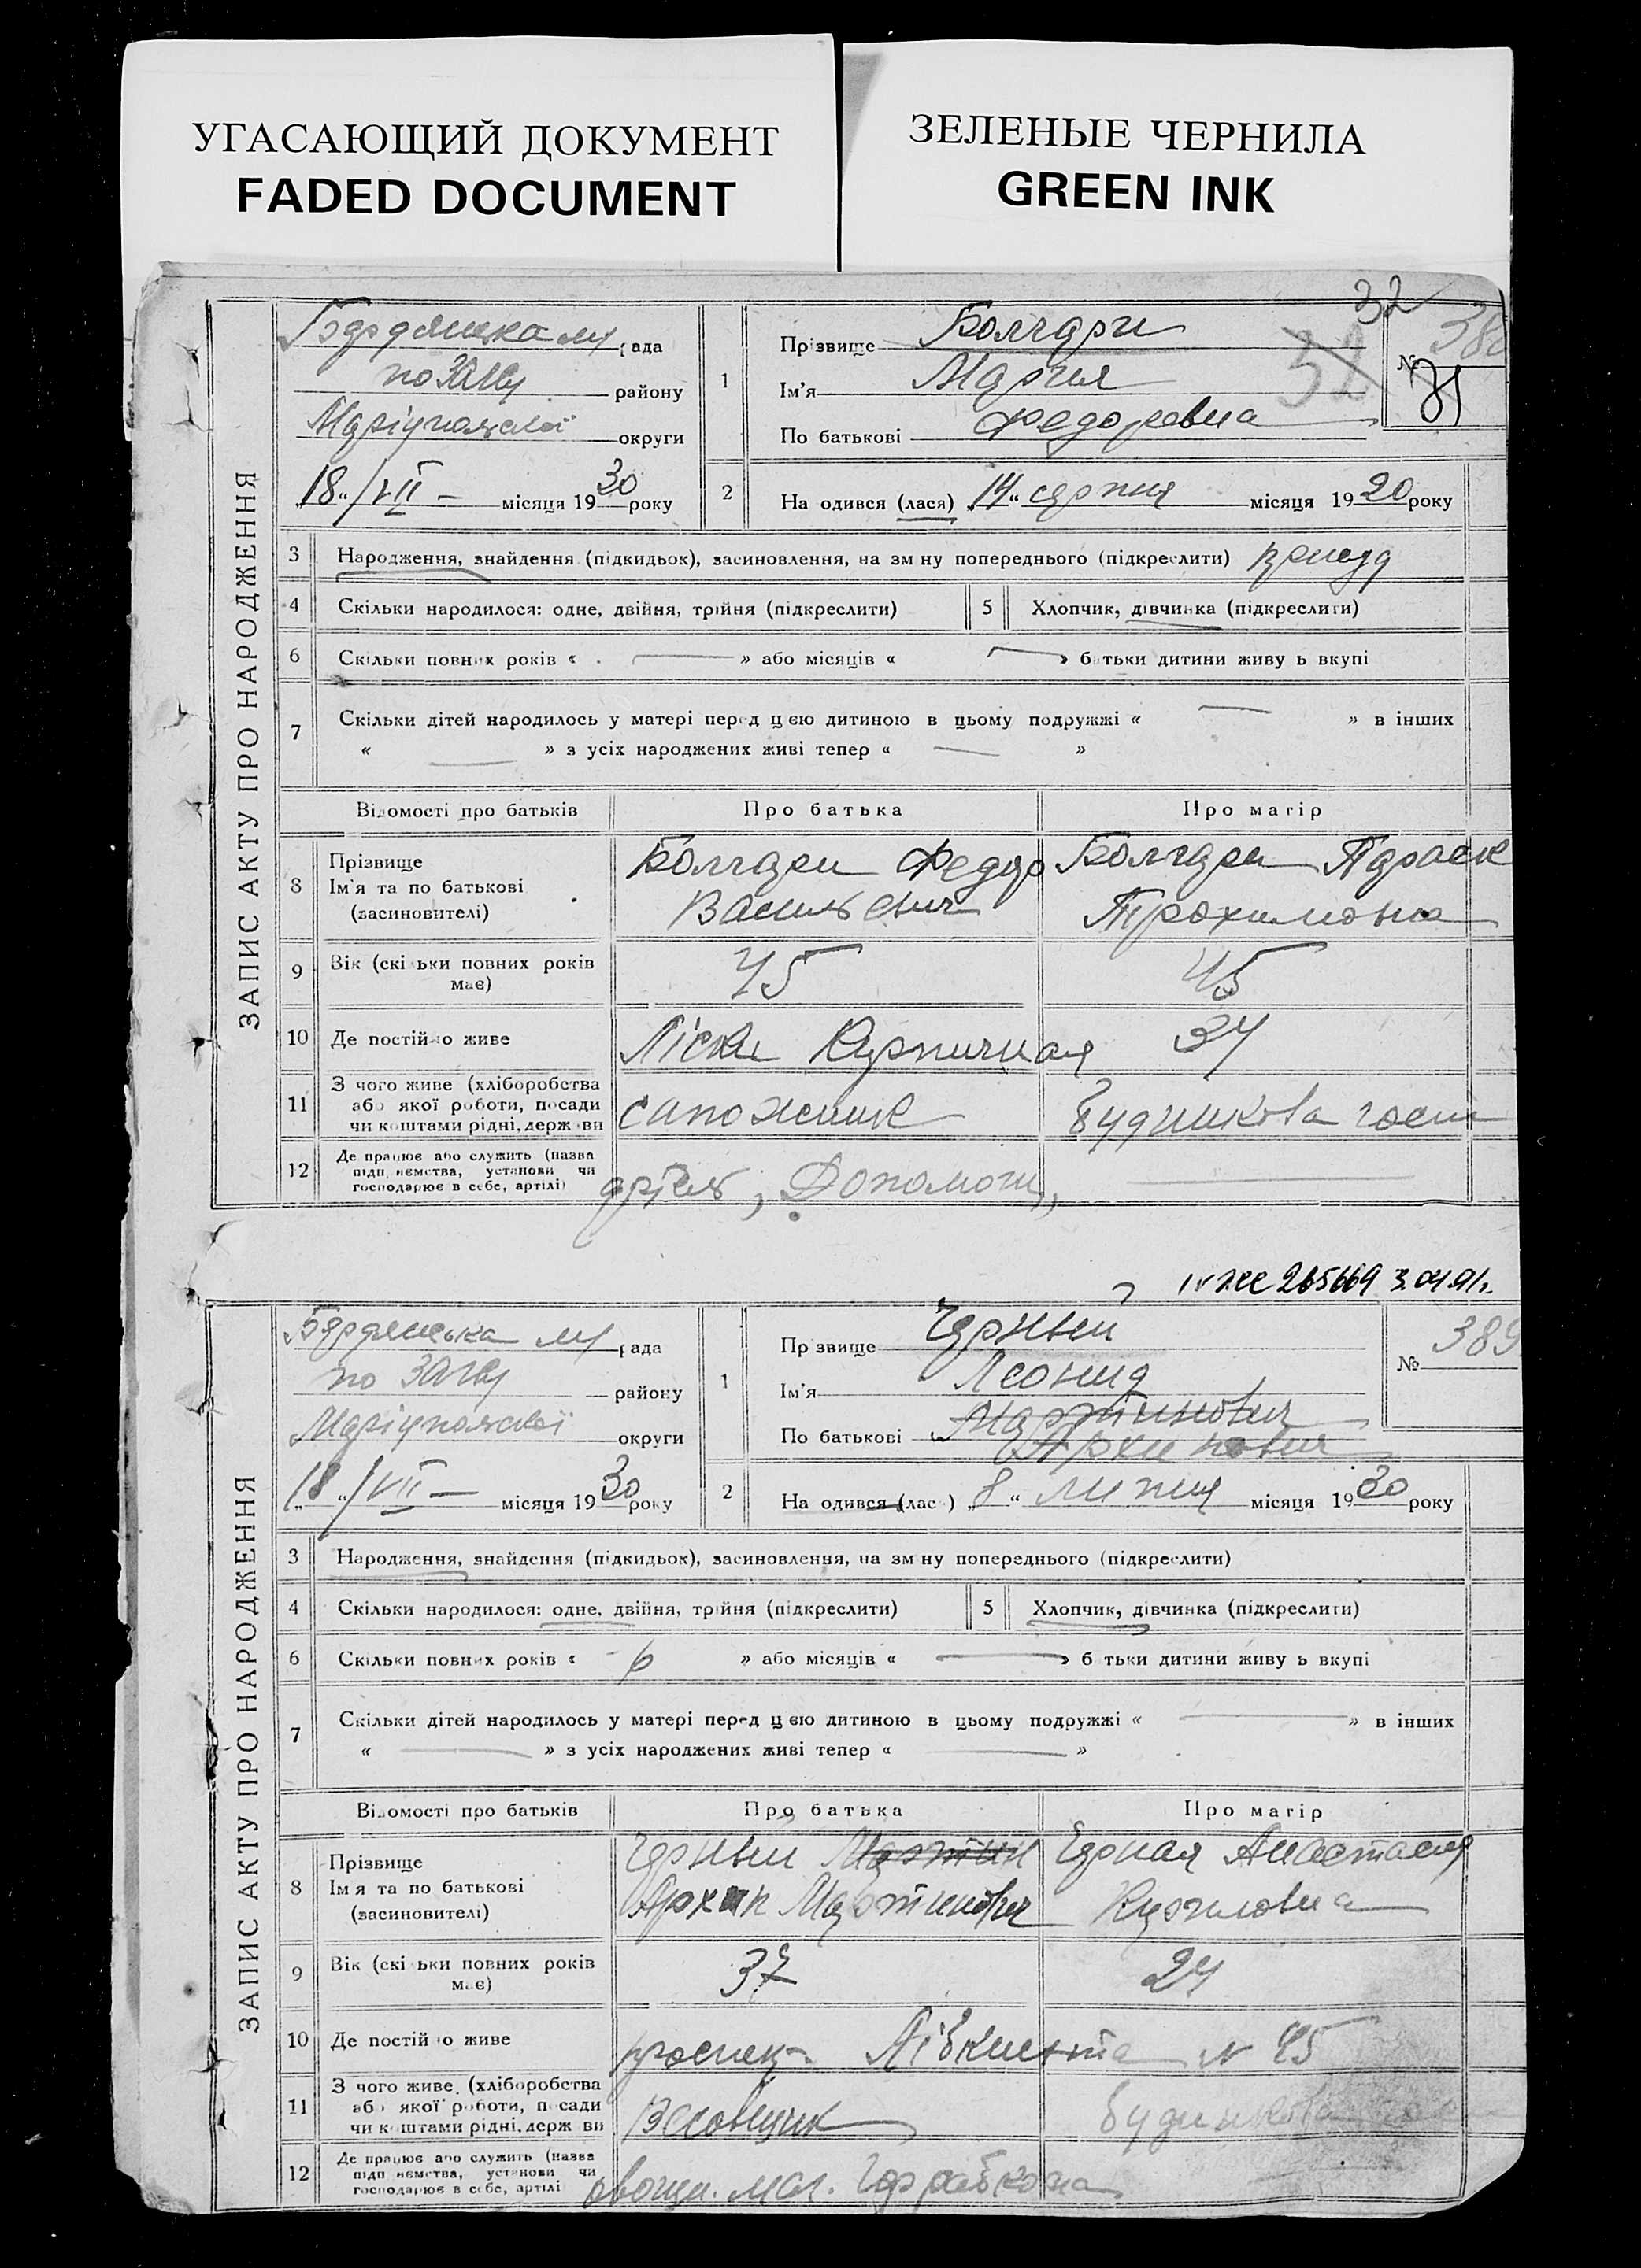 УГАСАЮЩИЙ ДОКУМЕНТ
FADED DOCUMENT
ЗЕЛЕНЫЕ ЧЕРНИЛА
GREEN INK
32
ЗАПИС АКТУ ПРО НАРОДЖЕННЯ
Бердянська м/рада
по ЗАГСу району
Маріупольської округи
18 / VII – місяця 1930 року
1
Прізвище Болгари
Ім'я Мария
По батькові Федоровна
32
№ 38
31
2 На одився (лася) „14" серпня місяця 1920 року
3 Народження, знайдення (підкидьок), засиновлення, на зм ну попереднього (підкреслити)
4 Скільки народилося: одне, двійня, трійня (підкреслити) 5 Хлопчик, дівчинка (підкреслити)
6 Скільки повних років « — » або місяців « — » батьки дитини живу ь вкупі
7 Скільки дітей народилось у матері перед цією дитиною в цьому подружжі « — » в інших
« — » з усіх народжених живі тепер « — »
Відомості про батьків Про батька Про матір
8 Прізвище
Ім'я та по батькові
(засиновителі)
Болгари Федор
Васильевич
Болгари Параск
Трохимовна
9 Вік (скі ьки повних років має) 45 45
10 Де постійно живе Ліски Кирпичная 34
11 З чого живе (хліборобства
або якої роботи, посади
чи коштами рідні, держ ви
сапожник
будинкова госп
12 Де працює або служить (назва
підп иємства, установи чи
господарює в себе, артілі)
артіль „Допомога"
265669 3.04.91г.
ЗАПИС АКТУ ПРО НАРОДЖЕННЯ
Бердянська м/рада
по ЗАГСу району
Маріупольської округи
„18" / VII – місяця 1930 року
1
Пр звище Чорный
Ім'я Леонид
По батькові Мартинович
Архипович
№ 389
2 На одився (лас ) „8" липня місяця 1930 року
3 Народження, знайдення (підкидьок), засиновлення, на зм ну попереднього (підкреслити)
4 Скільки народилося: одне, двійня, трійня (підкреслити) 5 Хлопчик, дівчинка (підкреслити)
6 Скільки повних років « 6 » або місяців « — » б тьки дитини живу ь вкупі
7 Скільки дітей народилось у матері перед цією дитиною в цьому подружжі « — » в інших
« — » з усіх народжених живі тепер « — »
Відомості про батьків Про батька Про матір
8 Прізвище
Ім я та по батькові
(засиновителі)
Чорный Мартин
Архип Мартинович
Чорная Анастасия
Кузьмовна
9 Вік (скі ьки повних років має) 37 24
10 Де постій о живе проспек. Лібкнехта № 45
11 З чого живе (хліборобства
або якої роботи, п сади
чи к штами рідні, держ ви
Весовщик
будинкова
12 Де працює або служить (назва
підп иємства, установи чи
господарює в себе, артілі
овощи. маг. Церабкопа